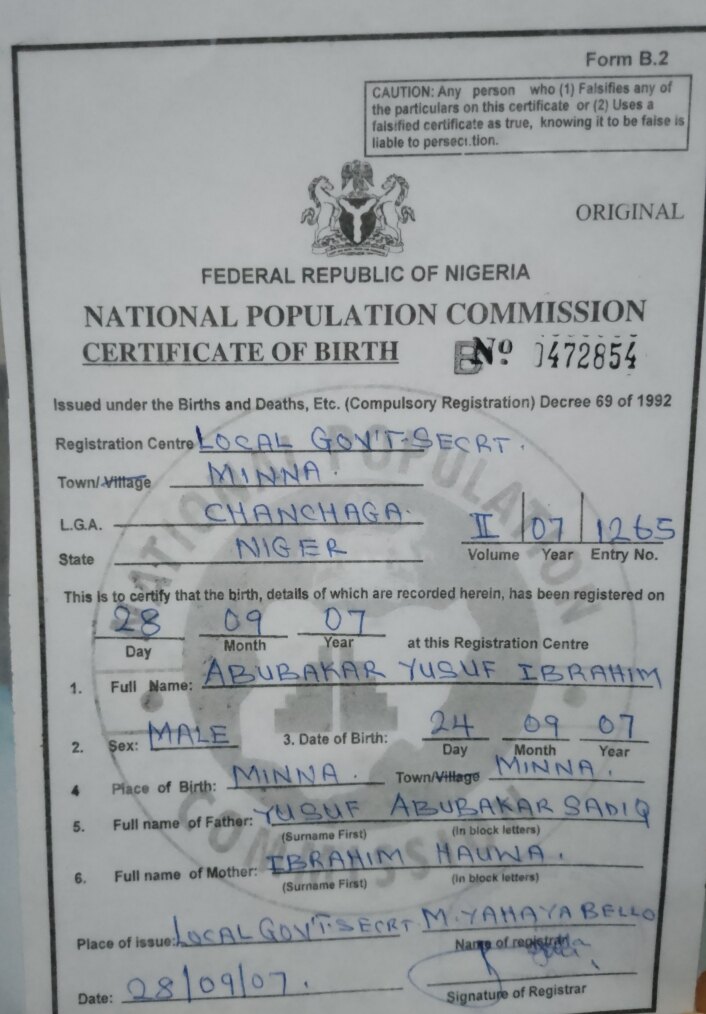 Form B.2
CAUTION: Any person who (1) Falsifies any of
the particulars on this certificate or (2) Uses a
falsified certificate as true, knowing it to be false is
liable to persecution.
ORIGINAL
FEDERAL REPUBLIC OF NIGERIA
NATIONAL POPULATION COMMISSION
CERTIFICATE OF BIRTH B Nº 0472854
Issued under the Births and Deaths, Etc. (Compulsory Registration) Decree 69 of 1992
Registration Centre LOCAL GOV'T-SECRT.
Town/Village MINNA.
L.G.A. CHANCHAGA.
State NIGER
II 07 1265
Volume Year Entry No.
This is to certify that the birth, details of which are recorded herein, has been registered on
28 09 07
Day Month Year at this Registration Centre
1. Full Name: ABUBAKAR YUSUF IBRAHIM
2. Sex: MALE 3. Date of Birth: 24 09 07
Day Month Year
4 Place of Birth: MINNA. Town/Village MINNA.
5. Full name of Father: YUSUF ABUBAKAR SADIQ
(Surname First) (In block letters)
6. Full name of Mother: IBRAHIM HAUWA.
(Surname First) (In block letters)
Place of issue: LOCAL GOV'T-SECRT. M. YAHAYA BELLO
Name of registrar
Date: 28/09/07.
Signature of Registrar
NATIONAL POPULATION
COMMISSION